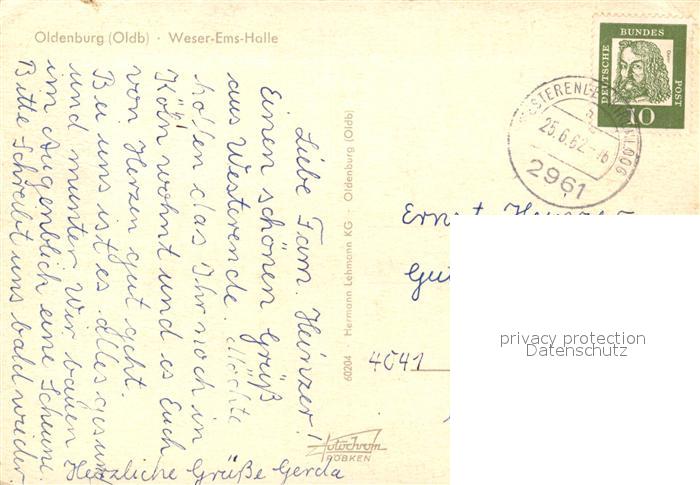 Oldenburg (Oldb) · Weser-Ems-Halle
Liebe Fam. Heinzer!
Einen schönen Gruß
aus Westerende. Möchte
hoffen das Ihr noch in
Köln wohnt und es Euch
von Herzen gut geht.
Bei uns ist es alles gesund
und munter. Wir bauen
im Augenblick eine Scheune.
Bitte schreibt uns bald wieder
Herzliche Grüße Gerda
60204 · Hermann Lehmann KG · Oldenburg (Oldb)
Autochrom
RÖBKEN
DEUTSCHE BUNDES POST
10
25.6.62-16
2961
Ernst
4041
privacy protection
Datenschutz